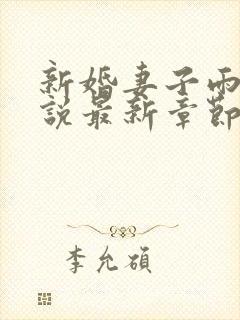 新婚妻子雨
說最新章節
李允碩